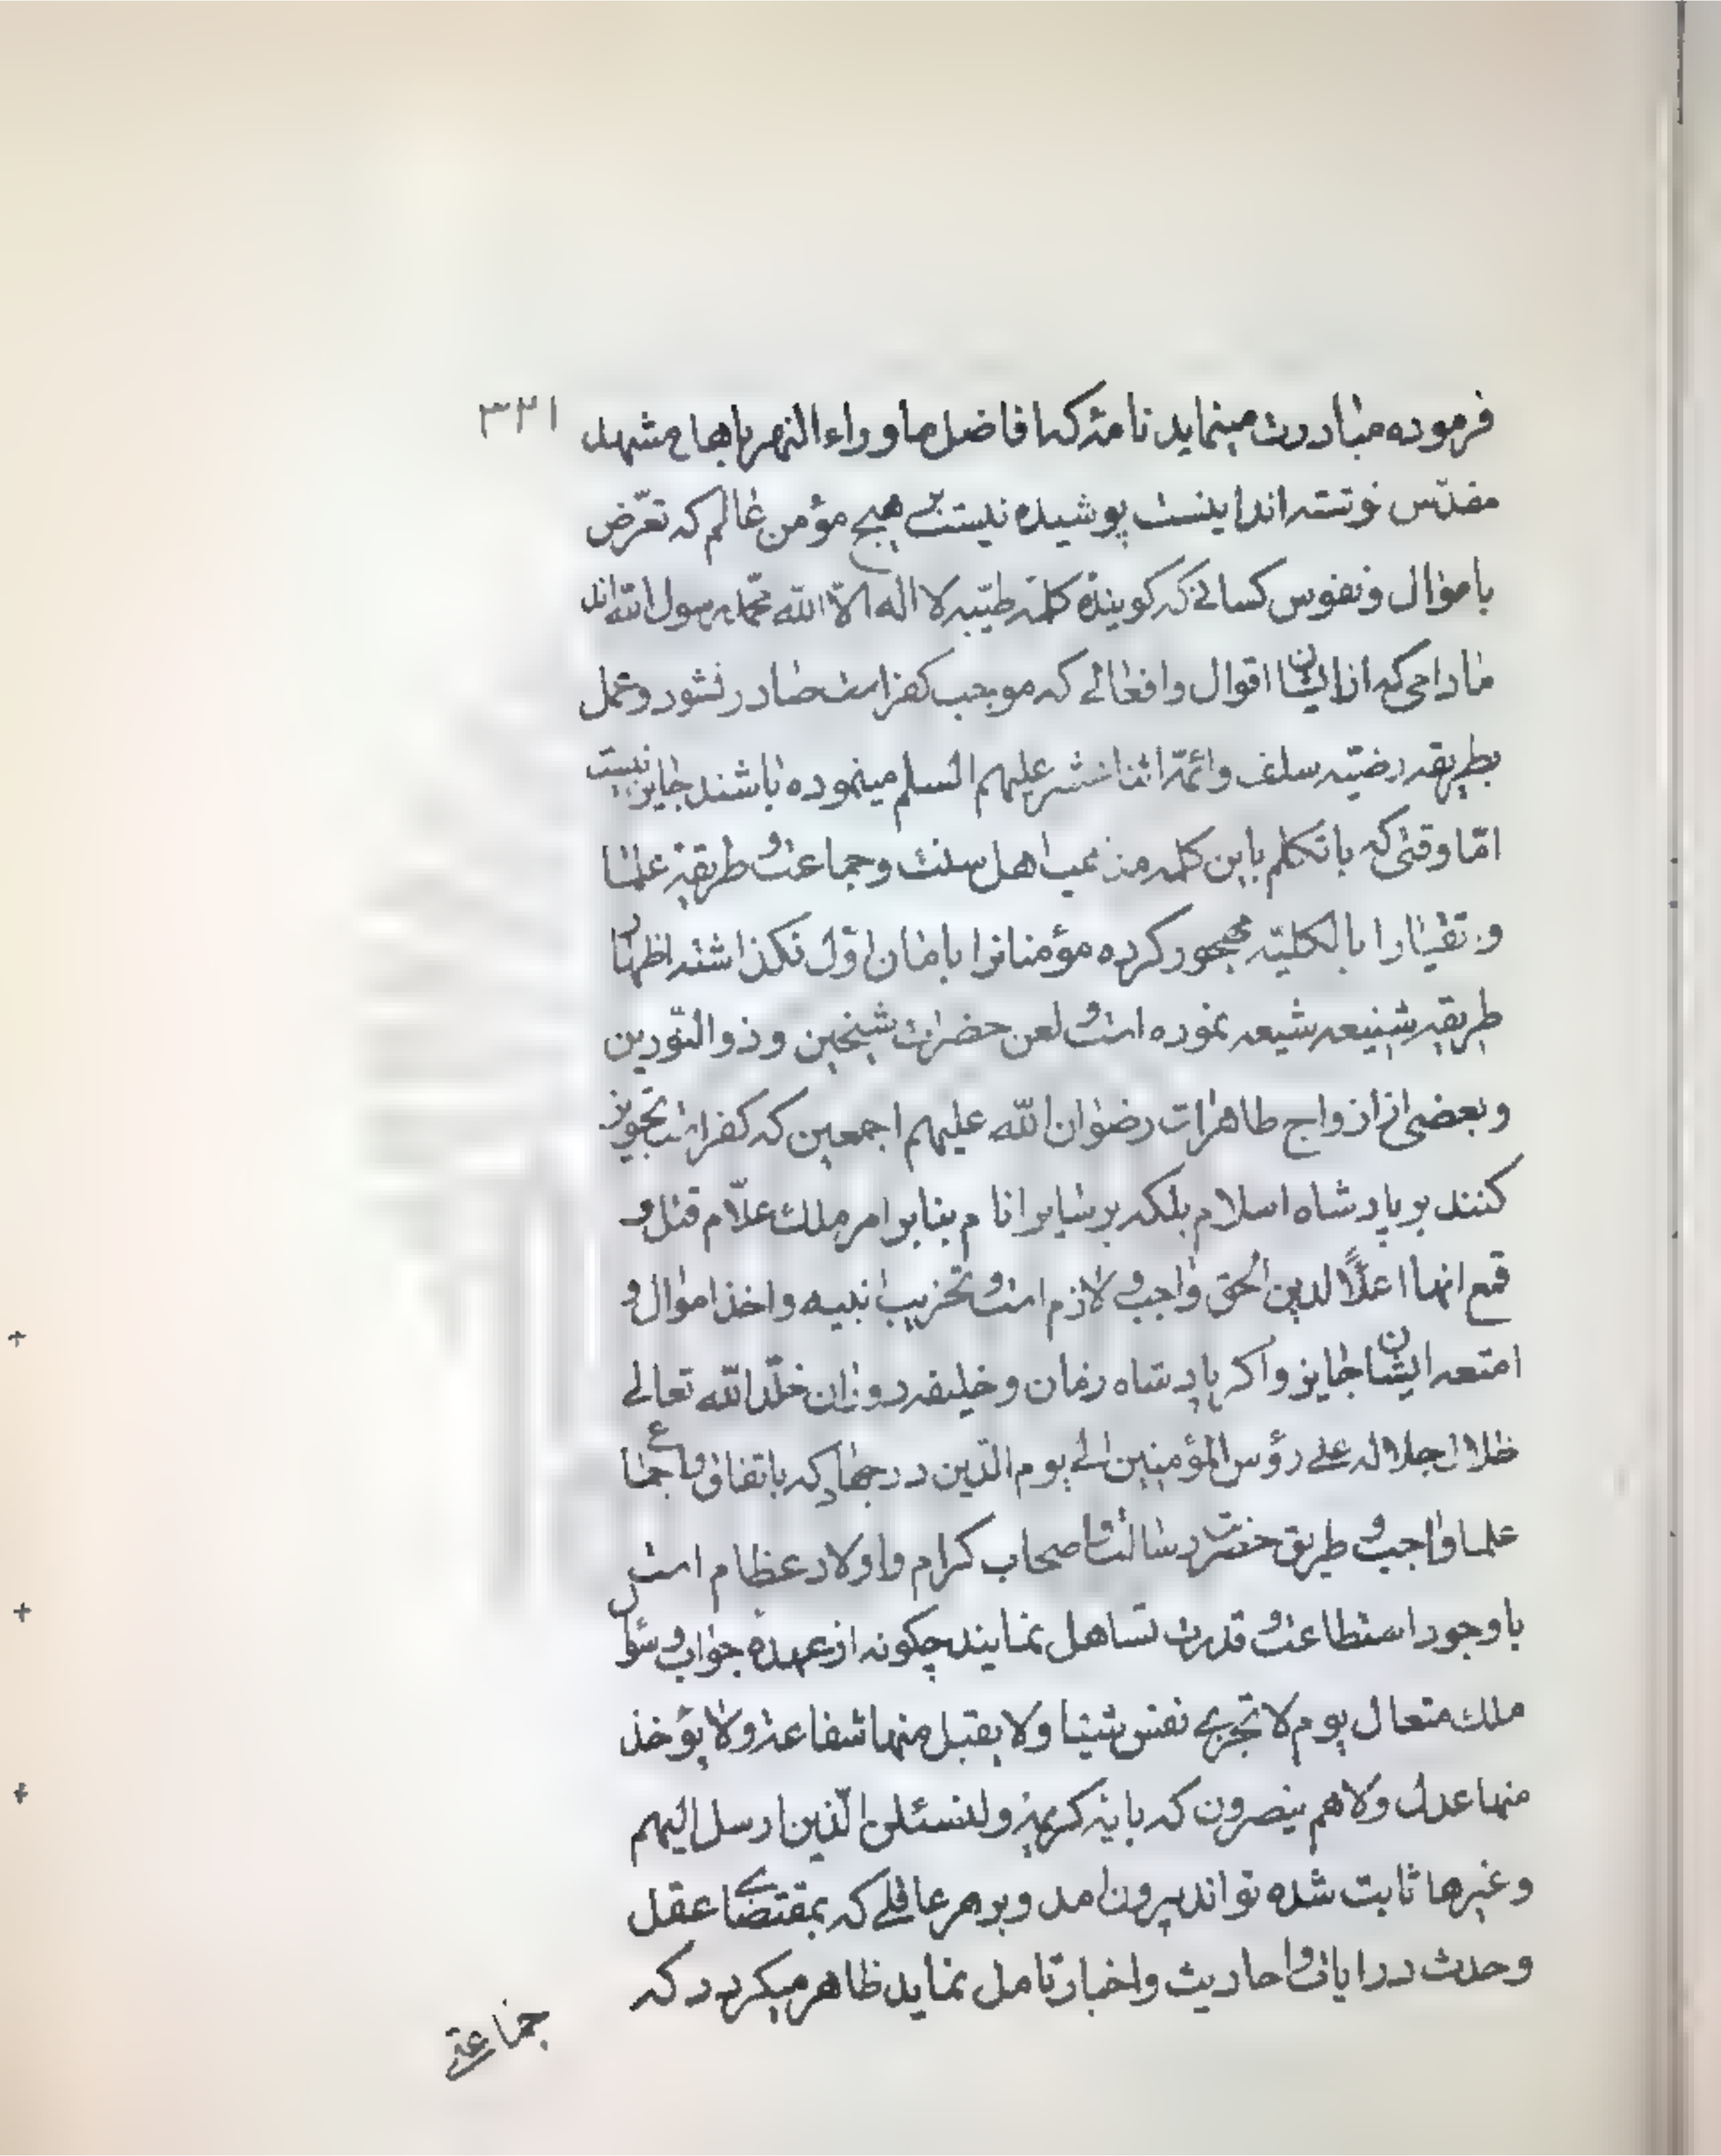 ۳۲۱
فرموده مبادرت مینماید نامهٔ که افاضل ماوراء النهر باهالی مشهد
مقدّس نوشته اند اینست پوشیده نیست بر هیچ مؤمن عالم که تعرّض
باموال و نفوس کسانے که کویندهٔ کلمه طیّبه لا اله الا الله محمّد رسول الله اند
مادامی که از ایشان اقوال و افعالے که موجب کفر است صادر نشود و عمل
بطریقه رضیّه سلف و ائمّه اثنا عشر علیهم السلم مینموده باشند جایز نیست
امّا وقتی که با تکلم باین کلمه مذهب اهل سنت و جماعت و طریقهٔ علما
و تقیا را بالکلیّه مهجور کرده مؤمنانرا بامان اوّل نکذاشته اظهار
طریقه شنیعه شیعه نموده است و لعن حضرات شیخین و ذو النّورین
و بعضی از ازواج طاهرات رضوان الله علیهم اجمعین که کفر است تجویز
کنند بر پادشاه اسلام بلکه بر سایر انام بنابر امر ملک علّام قتل و
قمع انها اعلاً لدین الحق واجب و لازم است و تخریب ابنیه و اخذ اموال و
امتعه ایشان جایز و اکر پادشاه زمان و خلیفه دوران خلّد الله تعالے
ظلال جلاله علے رؤس المؤمنین الے یوم الدّین در جهاد که باتفاق و اجماع
علما واجب و طریق حضرت رسالت و اصحاب کرام و اولاد عظام است
با وجود استطاعت و قدرت تساهل نمایند چکونه از عهدهٔ جواب و سؤال
ملک متعال یوم لا تجزے نفس شیئا ولا یقبل منها شفاعة ولا یؤخذ
منها عدل ولا هم ینصرون که بایهٔ کریمهٔ ولنسئلن الّذین ارسل الیهم
و غیرها ثابت شده تواند بیرون امد و بر هر عاقلے که بمقتضاے عقل
و حدث در ایات و احادیث و اخبار تامل نماید ظاهر میکردد که
جماعتے